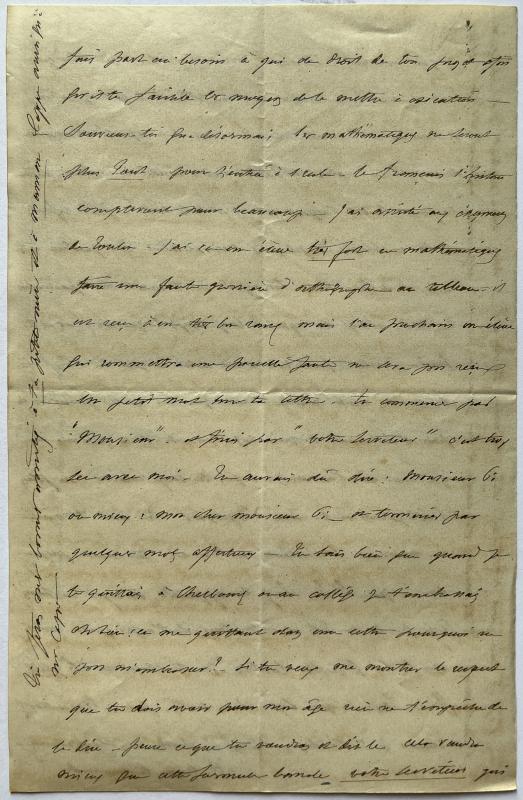 fais part au besoin à qui de droit de ton projet afin
qu'il te facilite les moyens de le mettre à exécution —
Souviens-toi que désormais les mathématiques ne seront
plus tout pour l'entrée à l'école — le français l'histoire
compteront pour beaucoup — J'ai assisté aux examens
de Toulon — J'ai vu un élève très fort en mathématiques
faire une faute grossière d'orthographe au tableau — il
est reçu à un très bon rang mais l'an prochain un élève
qui commettra une pareille faute ne sera pas reçu
Un petit mot sur ta lettre — tu commences par
"Monsieur" et finis par "votre serviteur" c'est trop
sec avec moi — Tu aurais dû dire : Monsieur C.
ou mieux : mon cher monsieur C. et terminer par
quelques mots affectueux — Tu sais bien que quand je
te quittais à Cherbourg ou au collège je t'embrassais
eh bien : en me quittant dans une lettre pourquoi ne
pas m'embrasser ? Si tu veux me montrer le respect
que tu dois avoir pour mon âge rien ne t'empêche de
le dire — pense ce que tu voudras et dis le cela vaudra
mieux que cette formule banale votre serviteur qui
Tu feras mes bonnes amitiés à ta petite mère et à maman